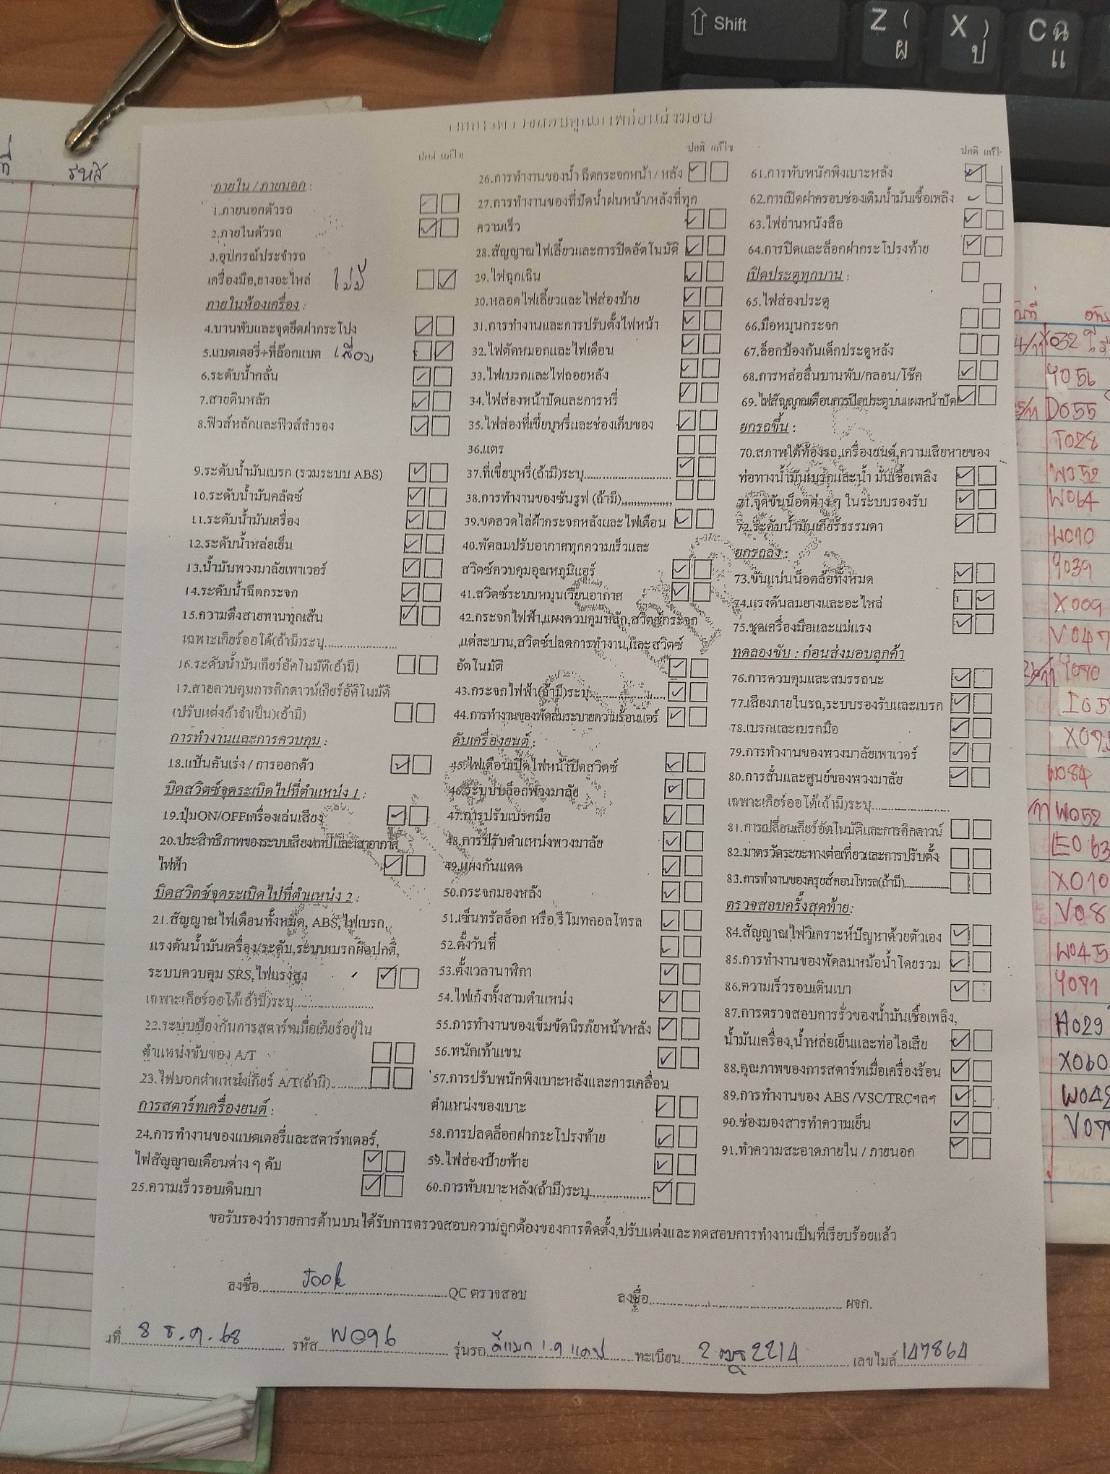 Shift
Z (
ผ
X )
ป
C ฉ
แ
ที่ รหัส
ปกติ แก้ไข
ภายใน / ภายนอก :
1.ภายนอกตัวรถ
2.ภายในตัวรถ
3.อุปกรณ์ประจำรถ
เครื่องมือ,ยางอะไหล่ ไม่มี
ภายในห้องเครื่อง :
4.บานพับและจุดยึดฝากระโปง
5.แบตเตอรี่+ที่ล๊อกแบต เสื่อม
6.ระดับน้ำกลั่น
7.สายดินหลัก
8.ฟิวส์หลักและฟิวส์สำรอง
9.ระดับน้ำมันเบรก (รวมระบบ ABS)
10.ระดับน้ำมันคลัตช์
11.ระดับน้ำมันเครื่อง
12.ระดับน้ำหล่อเย็น
13.น้ำมันพวงมาลัยเพาเวอร์
14.ระดับน้ำฉีดกระจก
15.ความตึงสายพานทุกเส้น
เฉพาะเกียร์ออโต้(ถ้ามี)ระบุ....................
16.ระดับน้ำมันเกียร์อัตโนมัติ(ถ้ามี)
17.สายควบคุมการคิกดาวน์เกียร์อัตโนมัติ
(ปรับแต่งถ้าจำเป็น)(ถ้ามี)
การทำงานและการควบคุม :
18.แป้นคันเร่ง / การออกตัว
บิดสวิตช์จุดระเบิดไปที่ตำแหน่ง 1 :
19.ปุ่มON/OFFเครื่องเล่นเสียง
20.ประสิทธิภาพของระบบเสียงเทปและเสาอากาศ
ไฟฟ้า
บิดสวิตช์จุดระเบิดไปที่ตำแหน่ง 2 :
21.สัญญาณไฟเตือนทั้งหมด, ABS,ไฟเบรก,
แรงดันน้ำมันเครื่อง/ระดับ,ระบบเบรกผิดปกติ,
ระบบควบคุม SRS,ไฟแรงสูง
เฉพาะเกียร์ออโต้(ถ้ามี)ระบุ....................
22.ระบบป้องกันการสตาร์ทเมื่อเกียร์อยู่ใน
ตำแหน่งขับของ A/T
23.ไฟบอกตำแหน่งเกียร์ A/T(ถ้ามี)...........
การสตาร์ทเครื่องยนต์ :
24.การทำงานของแบตเตอรี่และสตาร์ทเตอร์,
ไฟสัญญาณเตือนต่าง ๆ ดับ
25.ความเร็วรอบเดินเบา
ปกติ แก้ไข
26.การทำงานของน้ำฉีดกระจกหน้า / หลัง
27.การทำงานของที่ปัดน้ำฝนหน้า/หลังที่ทุก
ความเร็ว
28.สัญญาณไฟเลี้ยวและการปิดอัตโนมัติ
29.ไฟฉุกเฉิน
30.หลอดไฟเลี้ยวและไฟส่องป้าย
31.การทำงานและการปรับตั้งไฟหน้า
32.ไฟตัดหมอกและไฟเตือน
33.ไฟเบรกและไฟถอยหลัง
34.ไฟส่องหน้าปัดและการหรี่
35.ไฟส่องที่เขี่ยบุหรี่และช่องเก็บของ
36.แตร
37.ที่เขี่ยบุหรี่(ถ้ามี)ระบุ......................
38.การทำงานของซันรูฟ (ถ้ามี)..................
39.ขดลวดไล่ฝ้ากระจกหลังและไฟเตือน
40.พัดลมปรับอากาศทุกความเร็วและ
สวิตช์ควบคุมอุณหภูมิแอร์
41.สวิตช์ระบบหมุนเวียนอากาศ
42.กระจกไฟฟ้า,แผงควบคุมหลัก,สวิตช์กระจก
,แต่ละบาน,สวิตช์ปลดการทำงาน,และสวิตช์
อัตโนมัติ
43.กระจกไฟฟ้า(ถ้ามี)ระบุ..................
44.การทำงานของพัดลมระบายความร้อนแอร์
ดับเครื่องยนต์ :
45.ไฟเตือนเปิดไฟหน้า/ปิดสวิตช์
46.ระบบปลล็อกพวงมาลัย
47.การปรับเบรกมือ
48.การปรับตำแหน่งพวงมาลัย
49.แผงกันแดด
50.กระจกมองหลัง
51.เซ็นทรัลล็อก หรือ,รีโมทคอลโทรล
52.ตั้งวันที่
53.ตั้งเวลานาฬิกา
54.ไฟเก๋งทั้งสามตำแหน่ง
55.การทำงานของเข็มขัดนิรภัยหน้า/หลัง
56.พนักเท้าแขน
57.การปรับพนักพิงเบาะหลังและการเคลื่อน
ตำแหน่งของเบาะ
58.การปลดล็อกฝากระโปรงท้าย
59.ไฟส่องป้ายท้าย
60.การพับเบาะหลัง(ถ้ามี)ระบุ................
ปกติ แก้ไ
61.การทับพนักพิงเบาะหลัง
62.การเปิดฝาครอบช่องเติมน้ำมันเชื้อเพลิง
63.ไฟอ่านหนังสือ
64.การปิดและล็อกฝากระโปรงท้าย
เปิดประตูทุกบาน :
65.ไฟส่องประตู
66.มือหมุนกระจก
67.ล็อกป้องกันเด็กประตูหลัง
68.การหล่อลื่นบานพับ/กลอน/โช๊ค
69.ไฟสัญญาณเตือนการปิดประตูบนแผงหน้าปัด
ยกรถขึ้น :
70.สภาพใต้ท้องรถ,เครื่องยนต์,ความเสียหายของ
ท่อทางน้ำมันเบรกและน้ำ มันเชื้อเพลิง
71.จุดขันน็อตต่าง ๆ ในระบบรองรับ
72.ระดับน้ำมันเกียร์ธรรมดา
ยกรถลง :
73.ขันแน่นน็อตล้อทั้งหมด
74.แรงดันลมยางและอะไหล่
75.ชุดเครื่องมือและแม่แรง
ทดลองขับ : ก่อนส่งมอบลูกค้า
76.การควบคุมและสมรรถนะ
77.เสียงภายในรถ,ระบบรองรับและเบรก
78.เบรกและเบรกมือ
79.การทำงานของพวงมาลัยเพาเวอร์
80.การสั่นและศูนย์ของพวงมาลัย
เฉพาะเกียร์ออโต้(ถ้ามี)ระบุ....................
81.การเปลี่ยนเกียร์อัตโนมัติและการคิกดาวน์
82.มาตรวัดระยะทางต่อเที่ยวและการปรับตั้ง
83.การทำงานของครุยส์คอนโทรล(ถ้ามี)............
ตรวจสอบครั้งสุดท้าย:
84.สัญญาณไฟวิเคราะห์ปัญหาด้วยตัวเอง
85.การทำงานของพัดลมหม้อน้ำโดยรวม
86.ความเร็วรอบเดินเบา
87.การตรวจสอบการรั่วของน้ำมันเชื้อเพลิง,
น้ำมันเครื่อง,น้ำหล่อเย็นและท่อไอเสีย
88.คุณภาพของการสตาร์ทเมื่อเครื่องร้อน
89.การทำงานของ ABS /VSC/TRCฯลฯ
90.ช่องมองสารทำความเย็น
91.ทำความสะอาดภายใน / ภายนอก
ขอรับรองว่ารายการด้านบนได้รับการตรวจสอบความถูกต้องของการติดตั้ง,ปรับแต่งและทดสอบการทำงานเป็นที่เรียบร้อยแล้ว
ลงชื่อ Jook QC ตรวจสอบ ลงชื่อ ผจก.
ที่ 8 ธ.ค.68 รหัส W096 รุ่นรถ ดีแมก 1.9 แคป ทะเบียน 2 ฒฐ 2214 เลขไมล์ 147864
Y056
D055
T028
W052
W064
W010
Y039
X009
V047
W084
W052
X010
W045
Y091
H029
X060